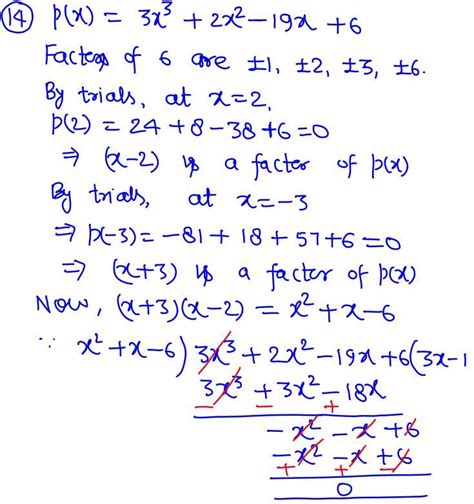 (14) p(x) = 3x³ + 2x² - 19x + 6
Factors of 6 are ±1, ±2, ±3, ±6.
By trials, at x = 2,
p(2) = 24 + 8 - 38 + 6 = 0
⇒ (x-2) is a factor of p(x)
By trials, at x = -3
⇒ p(-3) = -81 + 18 + 57 + 6 = 0
⇒ (x+3) is a factor of p(x)
Now, (x+3)(x-2) = x² + x - 6
∵ x² + x - 6) 3x³ + 2x² - 19x + 6 (3x - 1
3x³ + 3x² - 18x
- - +
- x² - x + 6
- x² - x + 6
+ + -
0